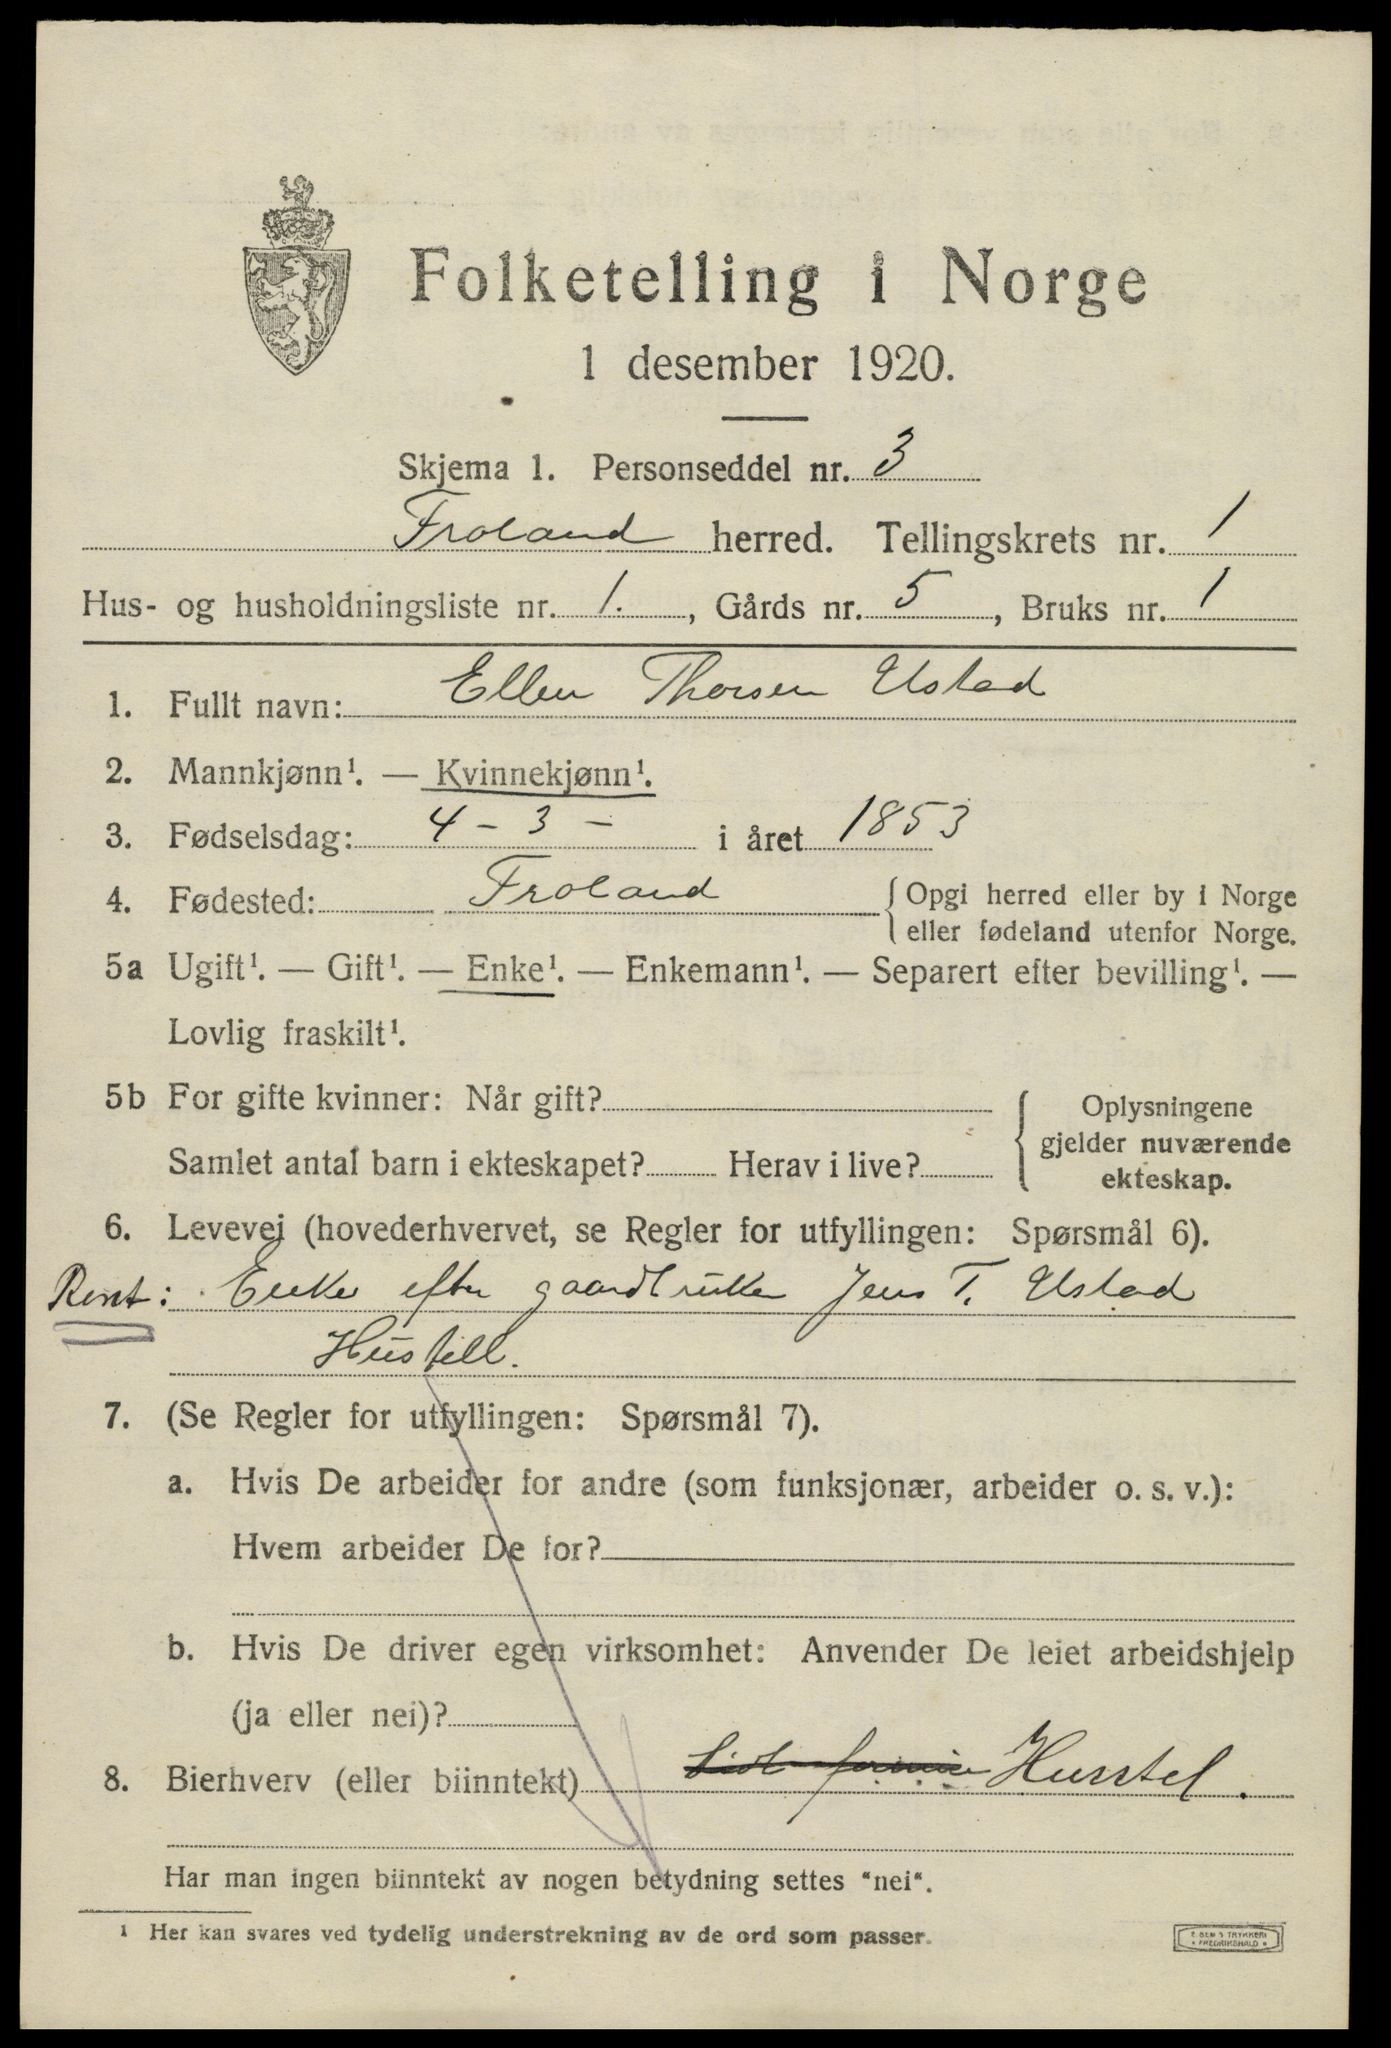 Folketelling i Norge
1 desember 1920.
Skjema 1. Personseddel nr. 3
Froland herred. Tellingskrets nr. 1
Hus- og husholdningsliste nr. 1., Gårds nr. 5, Bruks nr. 1
1. Fullt navn: Ellen Thorsen Ustad
2. Mannkjønn¹. — Kvinnekjønn¹.
3. Fødselsdag: 4 - 3 - i året 1853
4. Fødested: Froland {Opgi herred eller by i Norge
eller fødeland utenfor Norge.
5a Ugift¹. — Gift¹. — Enke¹. — Enkemann¹. — Separert efter bevilling¹. —
Lovlig fraskilt¹.
5b For gifte kvinner: Når gift?
Samlet antal barn i ekteskapet? Herav i live?
Oplysningene
gjelder nuværende
ekteskap.
6. Levevei (hovederhvervet, se Regler for utfyllingen: Spørsmål 6).
Rent: Enke efter gaardbruker Jens T. Ustad
Hustell.
7. (Se Regler for utfyllingen: Spørsmål 7).
a. Hvis De arbeider for andre (som funksjonær, arbeider o. s. v.):
Hvem arbeider De for?
b. Hvis De driver egen virksomhet: Anvender De leiet arbeidshjelp
(ja eller nei)?
8. Bierhverv (eller biinntekt) Husstel.
Har man ingen biinntekt av nogen betydning settes "nei".
1 Her kan svares ved tydelig understrekning av de ord som passer.
E. SEM'S TRYKKERI
FREDRIKSHALD